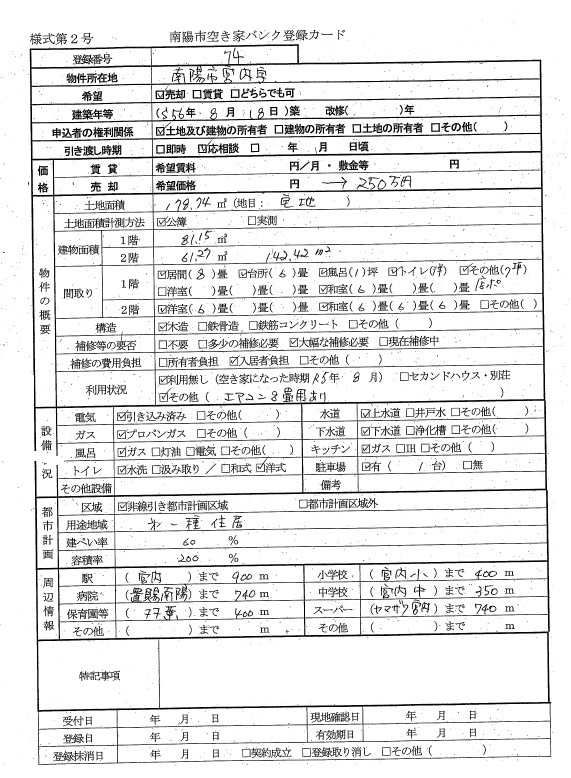 様式第2号 南陽市空き家バンク登録カード
登録番号 74
物件所在地 南陽市宮内字
希望 ☑売却 □賃貸 □どちらでも可
建築年等 (S56年 8月 18日)築 改修( )年
申込者の権利関係 ☑土地及び建物の所有者 □建物の所有者 □土地の所有者 □その他( )
引き渡し時期 □即時 ☑応相談 □ 年 月 日頃
価格 賃貸 希望賃料 円/月・敷金等 円
売却 希望価格 円 → 250万円
物件の概要 土地面積 178.74 ㎡(地目: 宅地 )
土地面積計測方法 ☑公簿 □実測
建物面積 1階 81.15 ㎡
2階 61.27 ㎡ 142.42 m²
間取り 1階 ☑居間(8)畳 ☑台所(6)畳 ☑風呂(1)坪 ☑トイレ(坪) ☑その他(7坪)
□洋室( )畳( )畳( )畳 ☑和室(6)畳( )畳( )畳 店舗
2階 ☑洋室(6)畳( )畳( )畳 ☑和室(6)畳(6)畳(6)畳 □その他( )
構造 ☑木造 □鉄骨造 □鉄筋コンクリート □その他( )
補修等の要否 □不要 □多少の補修必要 ☑大幅な補修必要 □現在補修中
補修の費用負担 □所有者負担 ☑入居者負担 □その他( )
利用状況 ☑利用無し(空き家になった時期 R5年 8月) □セカンドハウス・別荘
☑その他( エアコン8畳用あり
設備 況 電気 ☑引き込み済み □その他( ) 水道 ☑上水道 □井戸水 □その他( )
ガス ☑プロパンガス □その他( ) 下水道 ☑下水道 □浄化槽 □その他( )
風呂 ☑ガス □灯油 □電気 □その他( ) キッチン ☑ガス □IH □その他( )
トイレ ☑水洗 □汲み取り / □和式 ☑洋式 駐車場 ☑有( 1台) □無
その他設備 備考
都市計画 区域 ☑非線引き都市計画区域 □都市計画区域外
用途地域 第一種住居
建ぺい率 60 %
容積率 200 %
周辺情報 駅 (宮内)まで 900 m 小学校 (宮内小)まで 400 m
病院 (置賜南陽)まで 740 m 中学校 (宮内中)まで 350 m
保育園等 ( )まで 400 m スーパー (ヤマザワ宮内)まで 740 m
その他 ( )まで m その他 ( )まで m
特記事項
受付日 年 月 日 現地確認日 年 月 日
登録日 年 月 日 有効期日 年 月 日
登録抹消日 年 月 日 □契約成立 □登録取り消し □その他( )